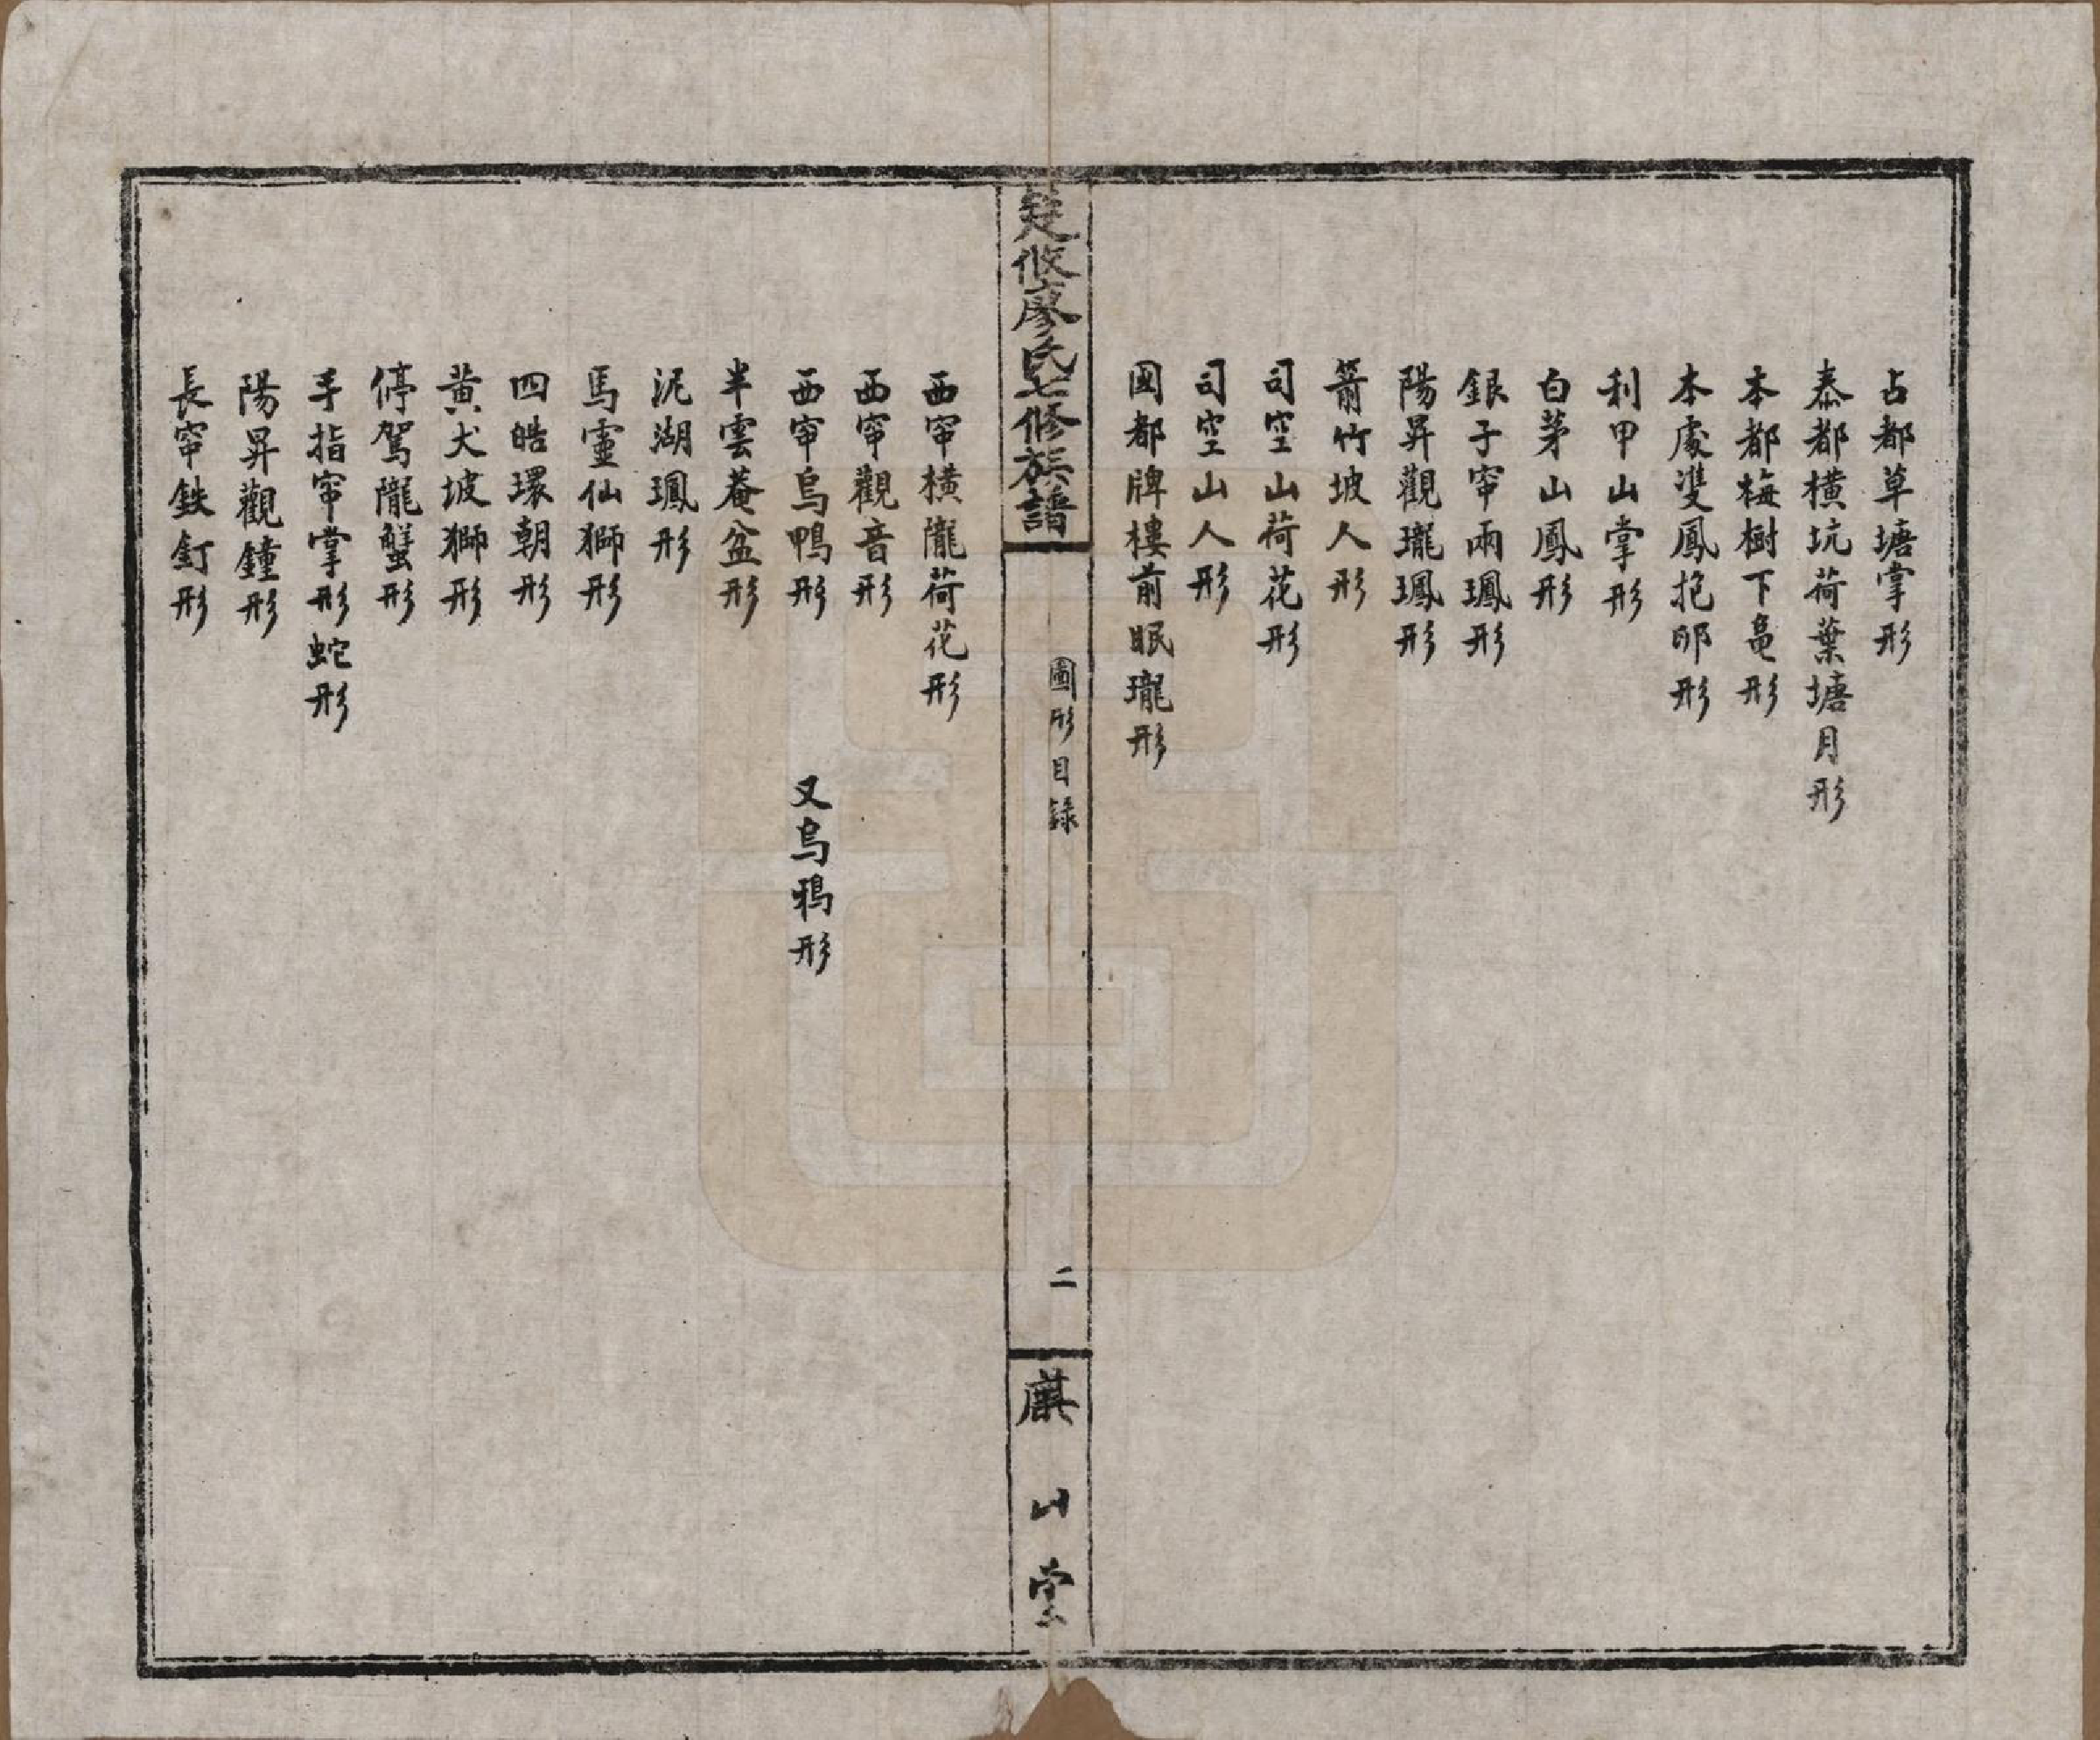 占都草塘掌形
泰都横坑荷葉塘月形
本都梅樹下黾形
本處雙鳳抱卵形
利甲山掌形
白茅山鳳形
銀子窂兩鳳形
陽昇觀瓏鳳形
箭竹坡人形
司空山荷花形
司空山人形
國都牌樓前眠瓏形
楚攸廖氏七修族譜
圖形目錄
二
麒山堂
西窂横隴荷花形
西窂觀音形
西窂烏鴨形 又烏鴉形
半雲菴盆形
泥湖鳳形
馬靈仙獅形
四皓環朝形
黄犬坡獅形
停駕隴蟹形
手指窂掌形蛇形
陽昇觀鐘形
長窂鉄釘形